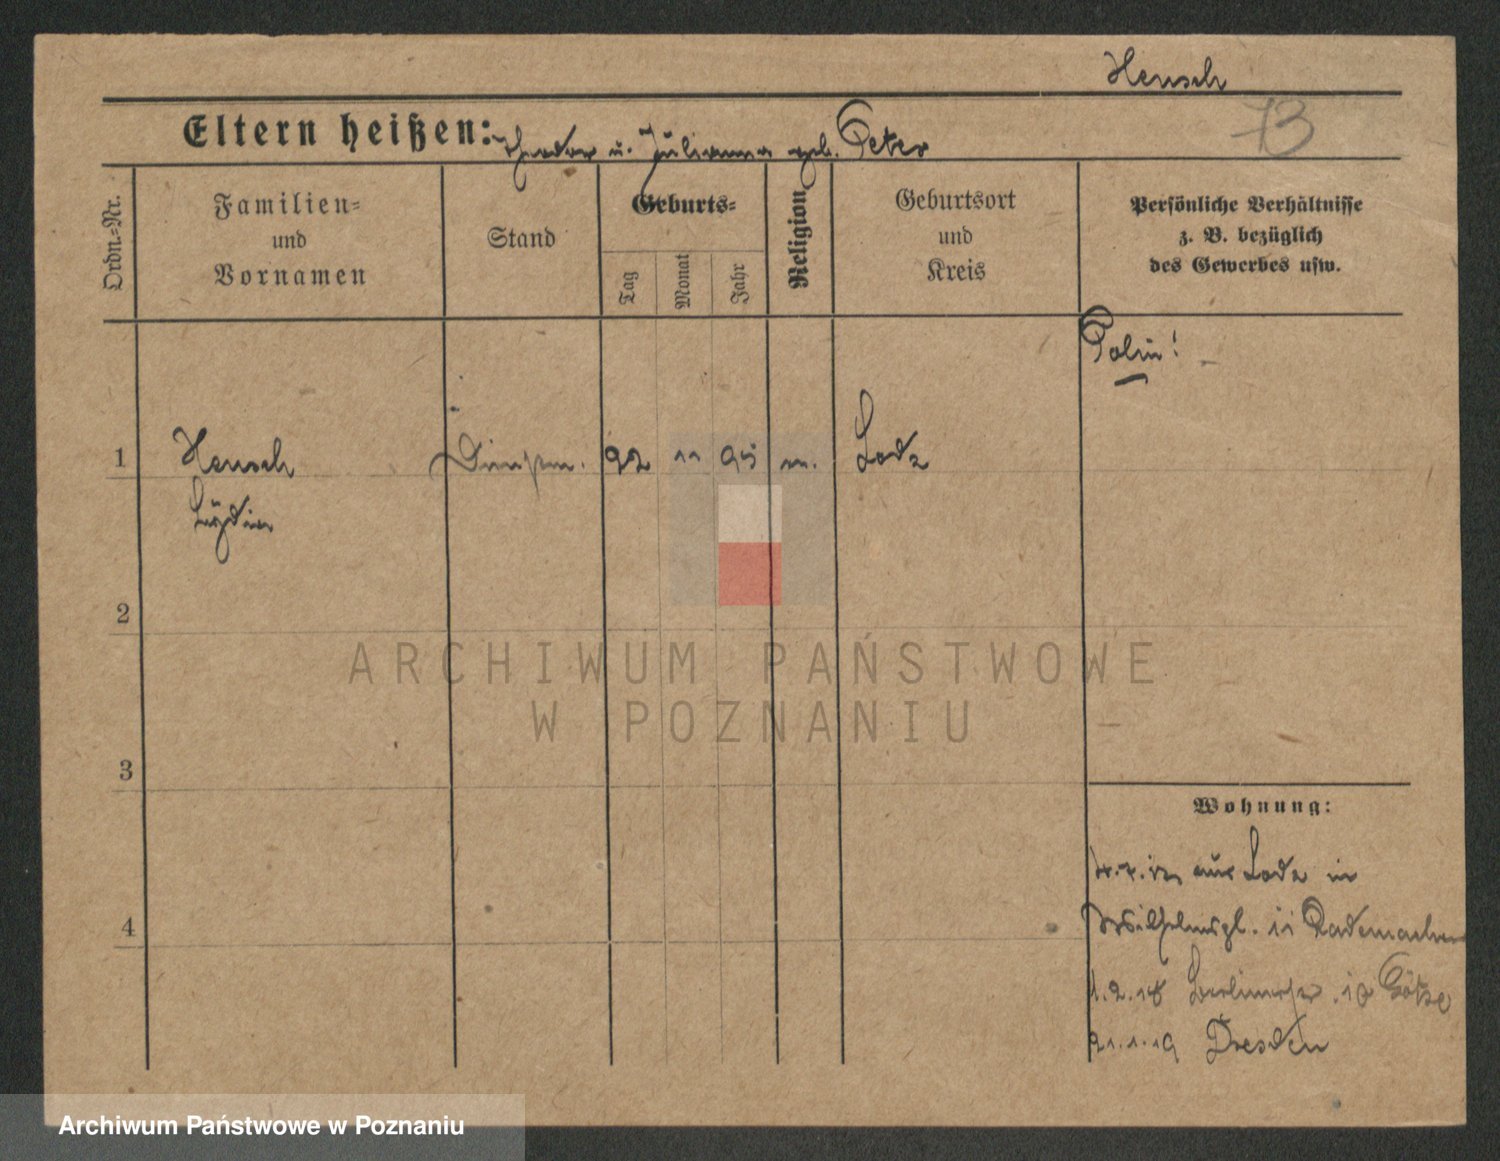 Hensch
73
Eltern heißen: Theodor u. Julianna geb. Peter
Ordn.=Nr.
Familien=
und
Vornamen
Stand
Geburts=
Tag
Monat
Jahr
Religion
Geburtsort
und
Kreis
Persönliche Verhältnisse
z. B. bezüglich
des Gewerbes usw.
Polin!
1 Hensch 22 11 95 Lodz
Lydia
2
ARCHIWUM PAŃSTWOWE
W POZNANIU
3
4
Wohnung:
aus Lodz in
Wilhelmspl. 11 Rademacher
1.2.18 Berlinerstr. 10 Götze
21.1.19 Dresden
Archiwum Państwowe w Poznaniu